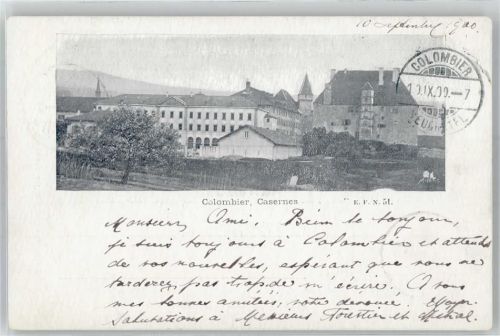 10 Septembre 1900
COLOMBIER
10.IX.00.-7
Colombier, Casernes
E. F. N. 51.
Monsieur Ami. Bien le bonjour,
je suis toujours à Colombier et attends
de vos nouvelles, espérant que vous ne
tarderez pas trop de m'écrire. A vous
mes bonnes amitiés, votre dévouée.
Salutations à Messieurs Forestier et